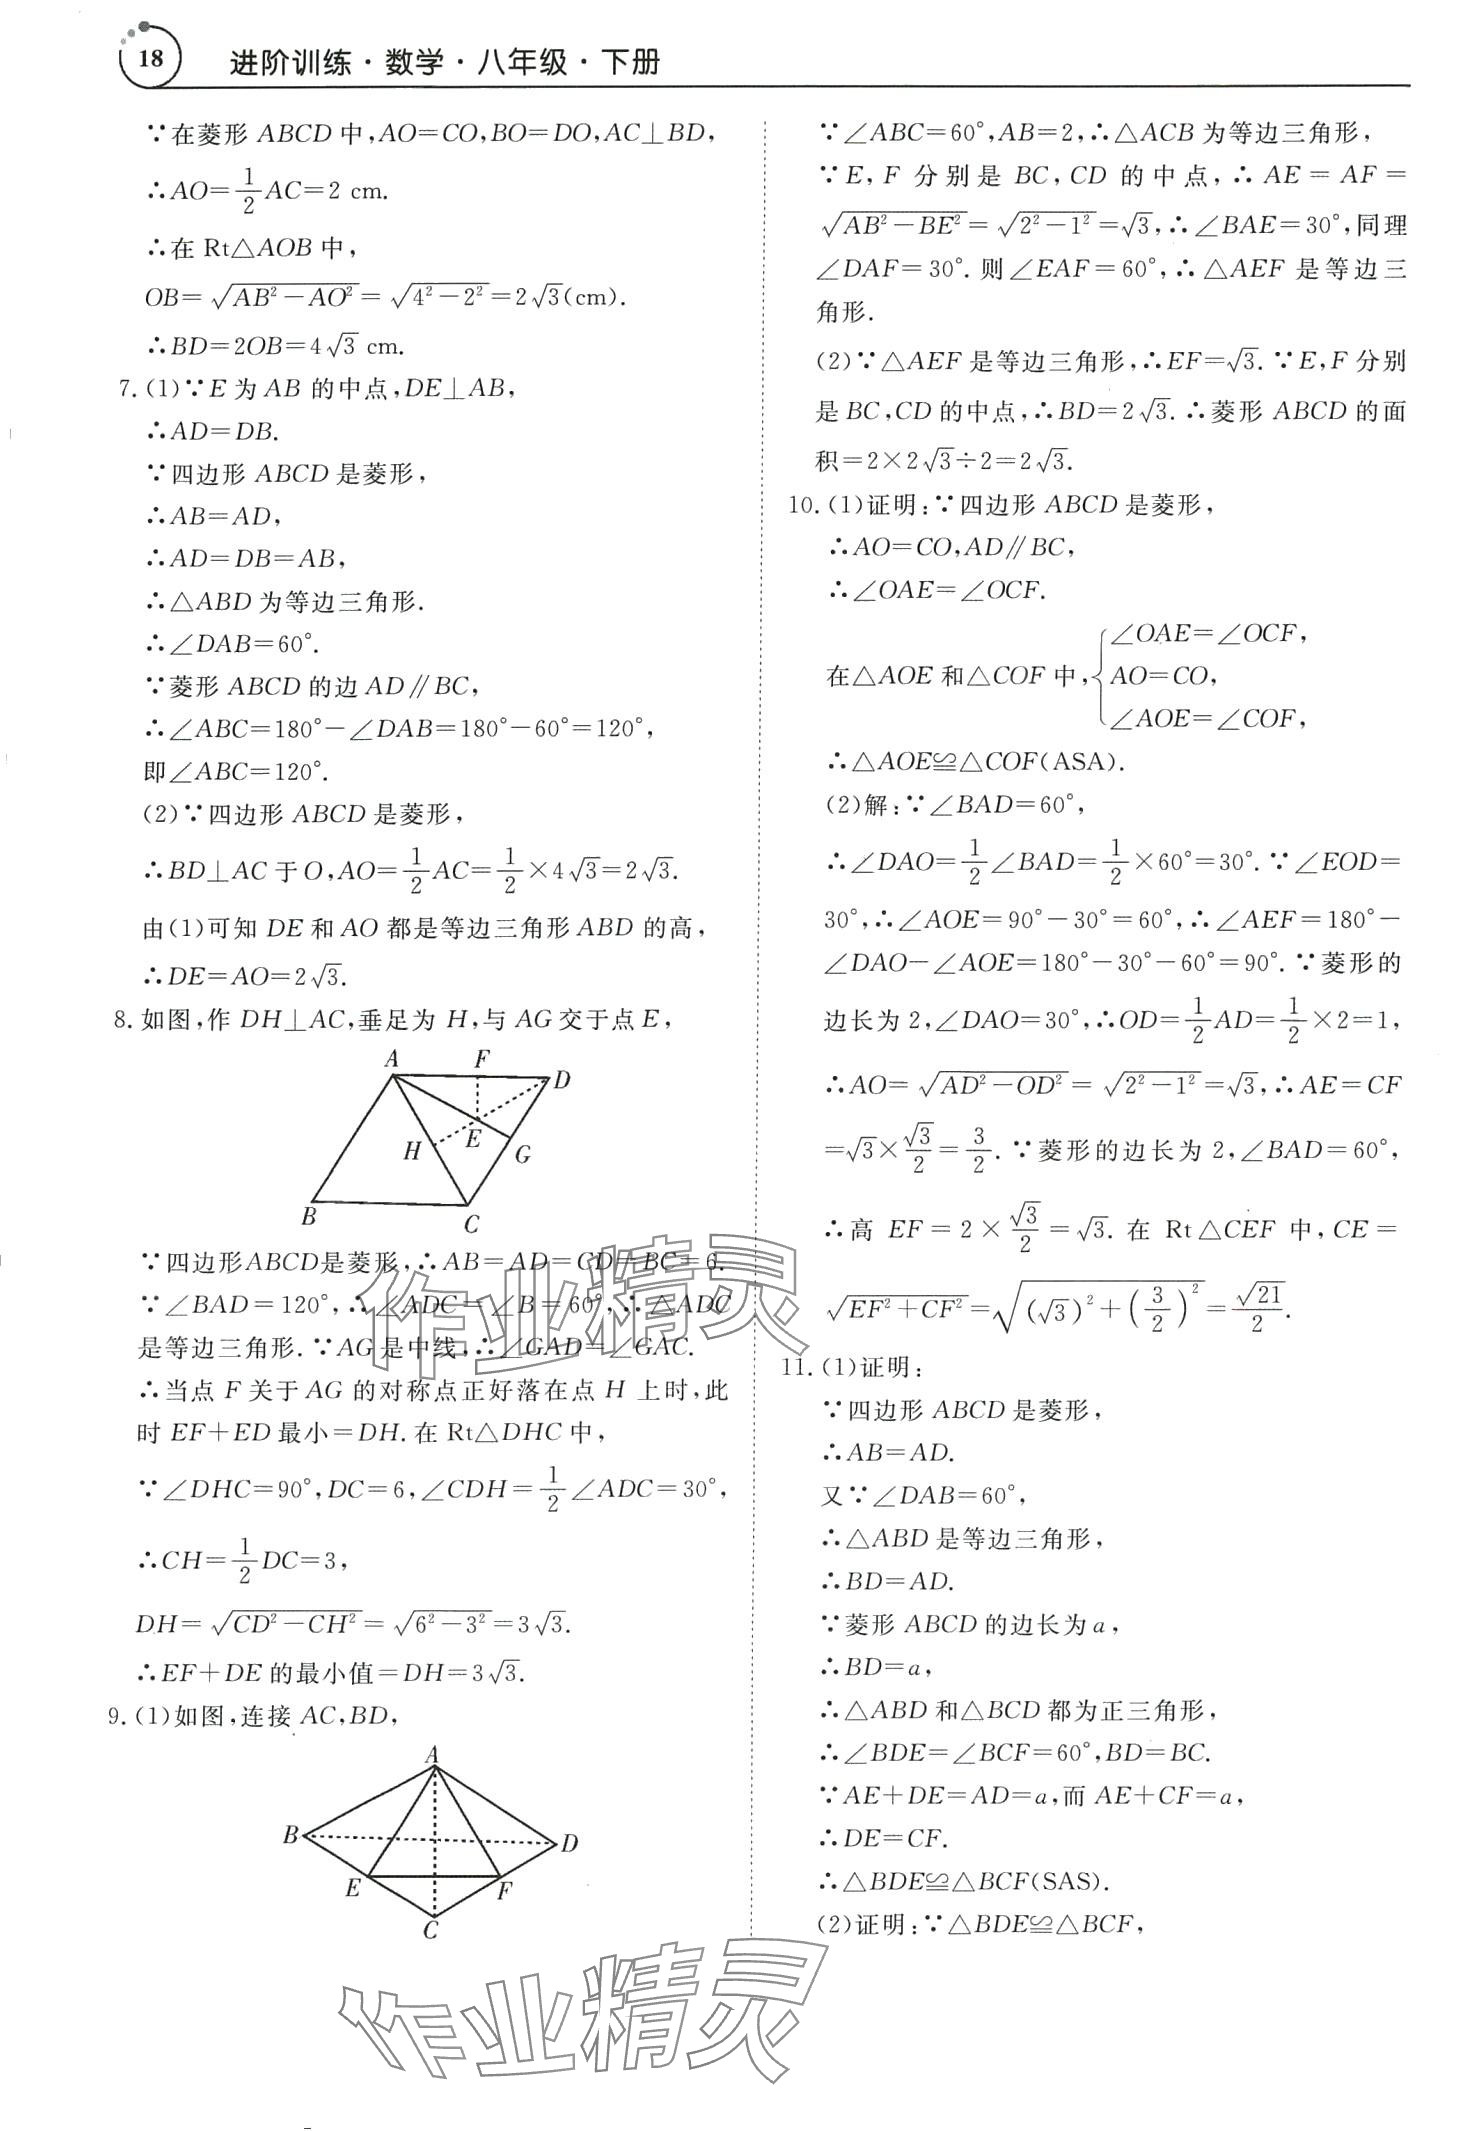 18
进阶训练·数学·八年级·下册
∵在菱形 ABCD 中,AO=CO,BO=DO,AC⊥BD,
∴AO=1/2 AC=2 cm.
∴在 Rt△AOB 中,
OB=√(AB²-AO²)=√(4²-2²)=2√3(cm).
∴BD=2OB=4√3 cm.
7.(1)∵E 为 AB 的中点,DE⊥AB,
∴AD=DB.
∵四边形 ABCD 是菱形,
∴AB=AD,
∴AD=DB=AB,
∴△ABD 为等边三角形.
∴∠DAB=60°.
∵菱形 ABCD 的边 AD∥BC,
∴∠ABC=180°-∠DAB=180°-60°=120°,
即∠ABC=120°.
(2)∵四边形 ABCD 是菱形,
∴BD⊥AC 于 O,AO=1/2 AC=1/2×4√3=2√3.
由(1)可知 DE 和 AO 都是等边三角形 ABD 的高,
∴DE=AO=2√3.
8.如图,作 DH⊥AC,垂足为 H,与 AG 交于点 E,
A F D
H E G
B C
∵四边形ABCD是菱形,∴AB=AD=CD=BC=6.
∵∠BAD=120°,∴∠ADC=∠B=60°,∴△ADC
是等边三角形.∵AG 是中线,∴∠GAD=∠GAC.
∴当点 F 关于 AG 的对称点正好落在点 H 上时,此
时 EF+ED 最小=DH.在 Rt△DHC 中,
∵∠DHC=90°,DC=6,∠CDH=1/2∠ADC=30°,
∴CH=1/2 DC=3,
DH=√(CD²-CH²)=√(6²-3²)=3√3.
∴EF+DE 的最小值=DH=3√3.
9.(1)如图,连接 AC,BD,
A
B D
E F
C
∵∠ABC=60°,AB=2,∴△ACB 为等边三角形,
∵E,F 分别是 BC,CD 的中点,∴AE=AF=
√(AB²-BE²)=√(2²-1²)=√3,∴∠BAE=30°,同理
∠DAF=30°.则∠EAF=60°,∴△AEF 是等边三
角形.
(2)∵△AEF 是等边三角形,∴EF=√3.∵E,F 分别
是 BC,CD 的中点,∴BD=2√3.∴菱形 ABCD 的面
积=2×2√3÷2=2√3.
10.(1)证明:∵四边形 ABCD 是菱形,
∴AO=CO,AD∥BC,
∴∠OAE=∠OCF.
在△AOE 和△COF 中,{∠OAE=∠OCF,
AO=CO,
∠AOE=∠COF,
∴△AOE≌△COF(ASA).
(2)解:∵∠BAD=60°,
∴∠DAO=1/2∠BAD=1/2×60°=30°.∵∠EOD=
30°,∴∠AOE=90°-30°=60°,∴∠AEF=180°-
∠DAO-∠AOE=180°-30°-60°=90°.∵菱形的
边长为 2,∠DAO=30°,∴OD=1/2 AD=1/2×2=1,
∴AO=√(AD²-OD²)=√(2²-1²)=√3,∴AE=CF
=√3×√3/2=3/2.∵菱形的边长为 2,∠BAD=60°,
∴高 EF=2×√3/2=√3.在 Rt△CEF 中,CE=
√(EF²+CF²)=√((√3)²+(3/2)²)=√21/2.
11.(1)证明:
∵四边形 ABCD 是菱形,
∴AB=AD.
又∵∠DAB=60°,
∴△ABD 是等边三角形,
∴BD=AD.
∵菱形 ABCD 的边长为 a,
∴BD=a,
∴△ABD 和△BCD 都为正三角形,
∴∠BDE=∠BCF=60°,BD=BC.
∵AE+DE=AD=a,而 AE+CF=a,
∴DE=CF.
∴△BDE≌△BCF(SAS).
(2)证明:∵△BDE≌△BCF,
作业精灵
作业精灵